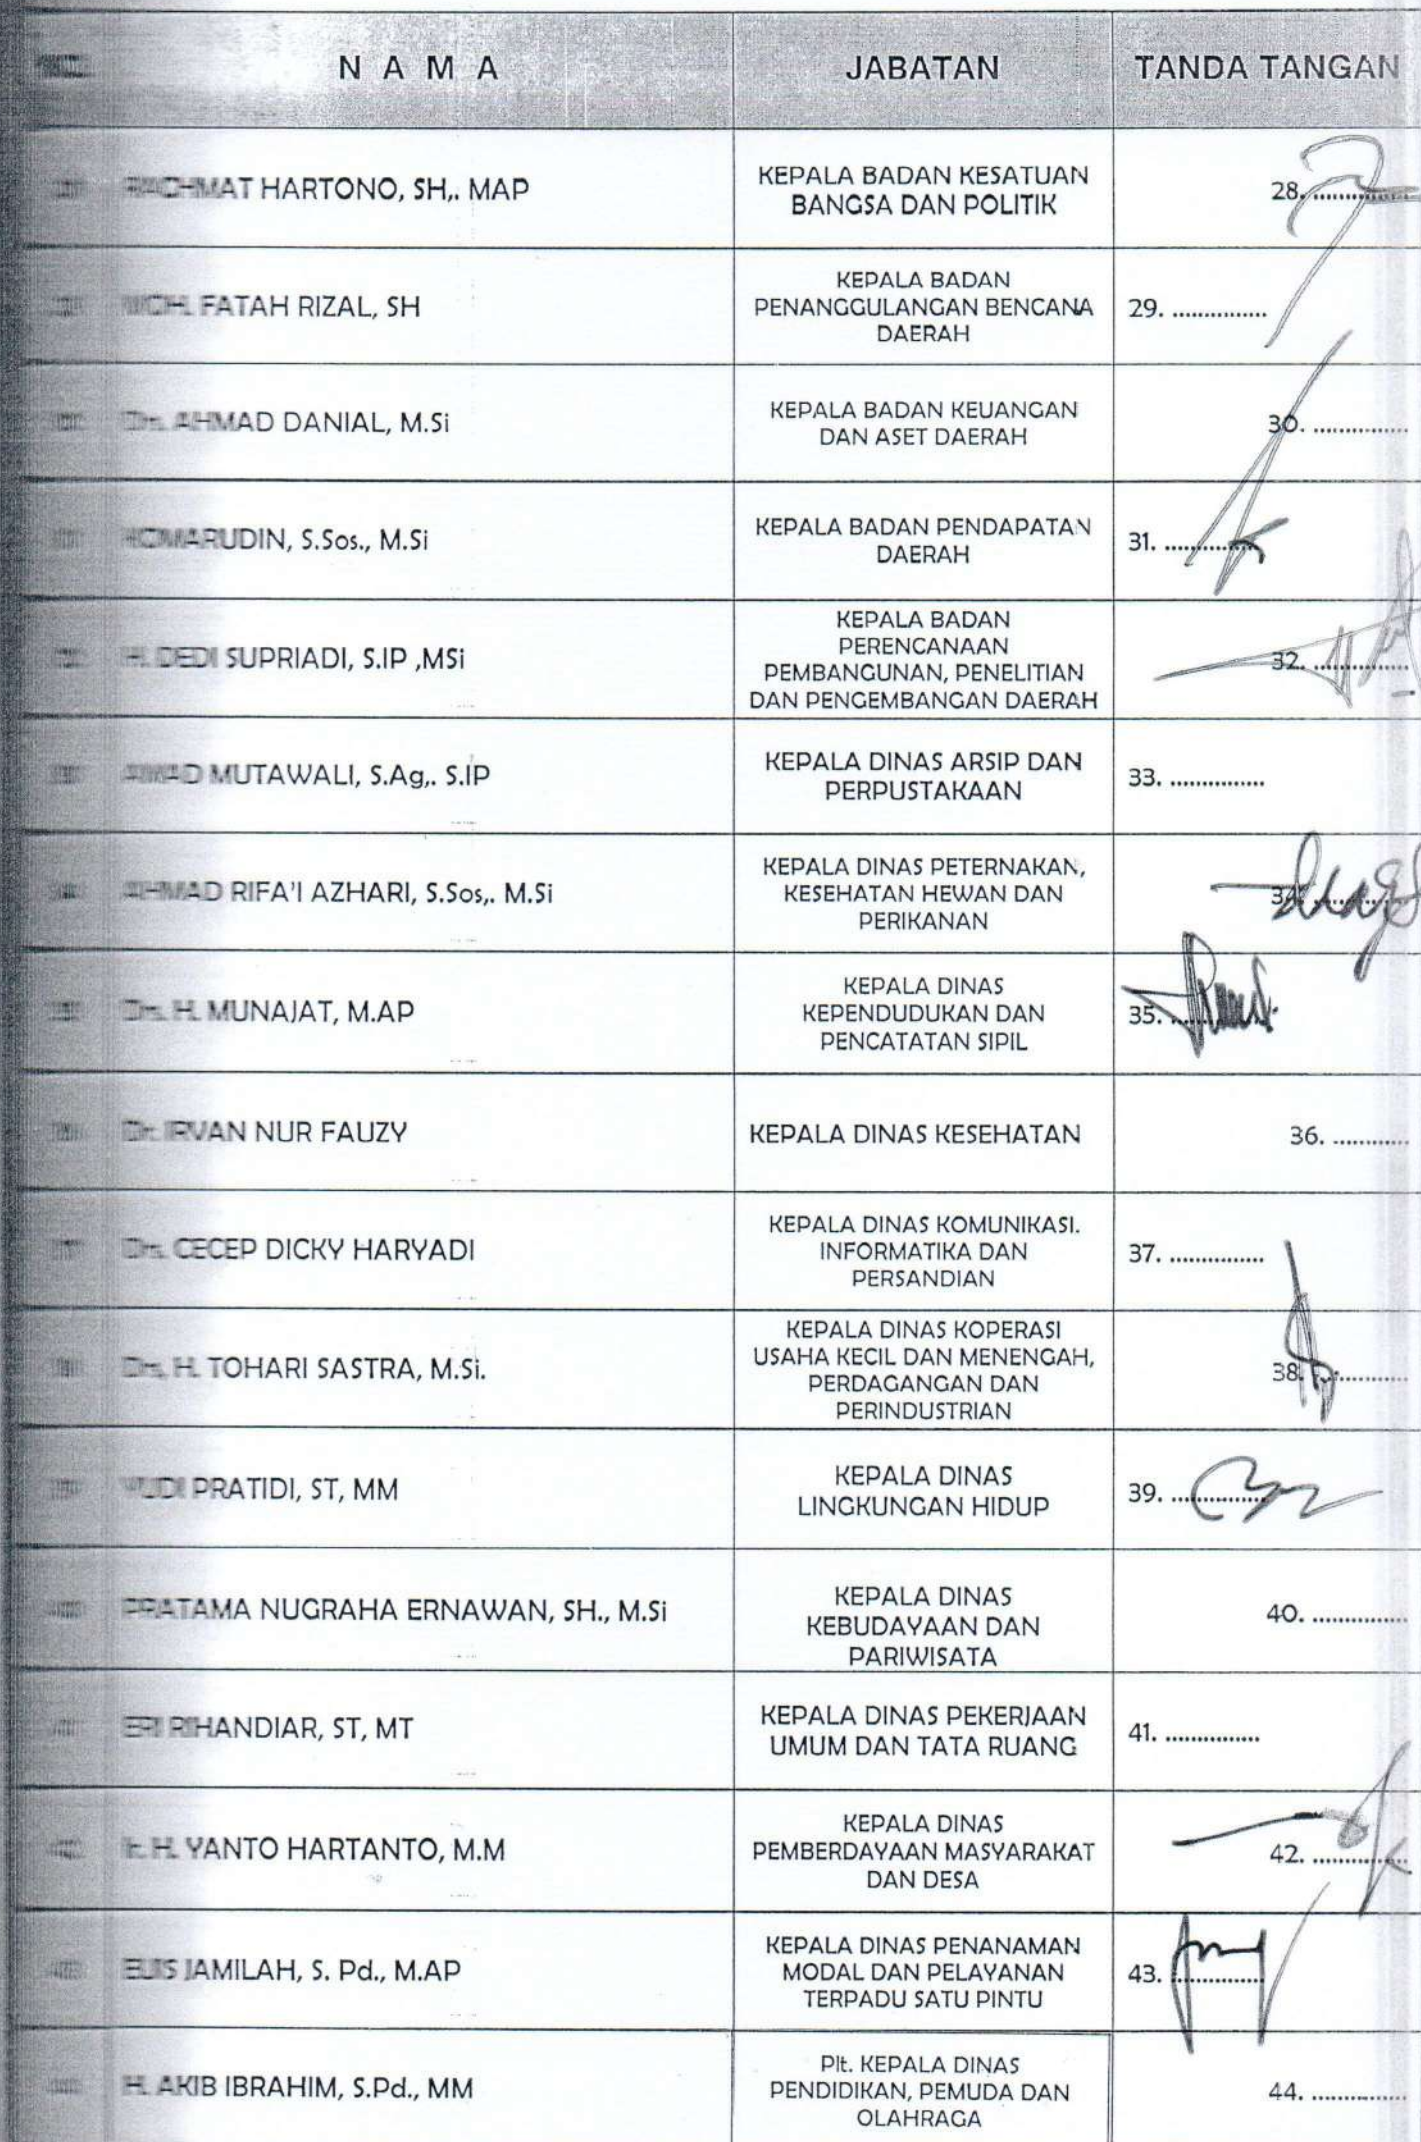 N A M A JABATAN TANDA TANGAN
RACHMAT HARTONO, SH,. MAP
KEPALA BADAN KESATUAN
BANGSA DAN POLITIK
28. ...............
MOH. FATAH RIZAL, SH
KEPALA BADAN
PENANGGULANGAN BENCANA
DAERAH
29. ...............
Drs. AHMAD DANIAL, M.Si
KEPALA BADAN KEUANGAN
DAN ASET DAERAH
30. ...............
KOMARUDIN, S.Sos., M.Si
KEPALA BADAN PENDAPATAN
DAERAH
31. ...............
H. DEDI SUPRIADI, S.IP ,MSi
KEPALA BADAN
PERENCANAAN
PEMBANGUNAN, PENELITIAN
DAN PENGEMBANGAN DAERAH
32. ...............
MUTAWALI, S.Ag,. S.IP
KEPALA DINAS ARSIP DAN
PERPUSTAKAAN
33. ...............
AHMAD RIFA'I AZHARI, S.Sos,. M.Si
KEPALA DINAS PETERNAKAN,
KESEHATAN HEWAN DAN
PERIKANAN
34. ...............
Drs. H. MUNAJAT, M.AP
KEPALA DINAS
KEPENDUDUKAN DAN
PENCATATAN SIPIL
35. ...............
Dr. IRVAN NUR FAUZY
KEPALA DINAS KESEHATAN
36. ............
Drs. CECEP DICKY HARYADI
KEPALA DINAS KOMUNIKASI.
INFORMATIKA DAN
PERSANDIAN
37. ...............
Drs. H. TOHARI SASTRA, M.Si.
KEPALA DINAS KOPERASI
USAHA KECIL DAN MENENGAH,
PERDAGANGAN DAN
PERINDUSTRIAN
38. ...............
YUDI PRATIDI, ST, MM
KEPALA DINAS
LINGKUNGAN HIDUP
39. ...............
PRATAMA NUGRAHA ERNAWAN, SH., M.Si
KEPALA DINAS
KEBUDAYAAN DAN
PARIWISATA
40. ...............
ERI RIHANDIAR, ST, MT
KEPALA DINAS PEKERJAAN
UMUM DAN TATA RUANG
41. ...............
Ir. H. YANTO HARTANTO, M.M
KEPALA DINAS
PEMBERDAYAAN MASYARAKAT
DAN DESA
42. ...............
ELIS JAMILAH, S. Pd., M.AP
KEPALA DINAS PENANAMAN
MODAL DAN PELAYANAN
TERPADU SATU PINTU
43. ...............
H. AKIB IBRAHIM, S.Pd., MM
Plt. KEPALA DINAS
PENDIDIKAN, PEMUDA DAN
OLAHRAGA
44. ...............